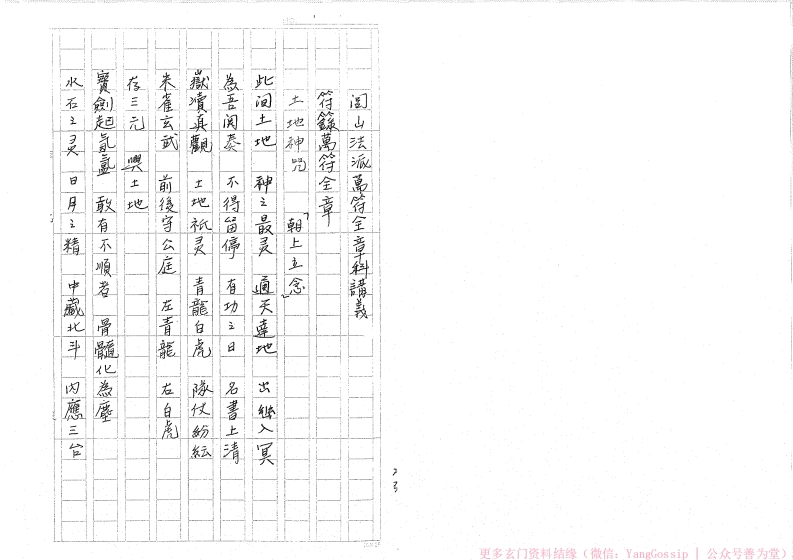 閭山法派萬符全章科講義
符籙萬符全章
土地神咒 「朝上立念」
此间土地 神之最灵 通天達地 出继入冥
為吾関奏 不得留停 有功之日 名書上清
嶽瀆真觀 土地祇灵 青龍白虎 隊仗紛紜
朱雀玄武 前後守公庭 左青龍 右白虎
存三元 與土地
寶劍起氣𥁞 敢有不順者 骨髓化為塵
水石之灵 日月之精 中藏北斗 内應三台
23
更多玄门资料结缘（微信：YangGossip | 公众号善为堂）